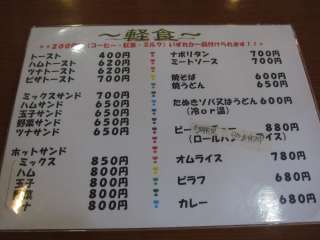 ～軽食～
200円 (コーヒー・紅茶・ミルク) いずれか一品付けられます!!
トースト 400円
ハムトースト 620円
ツナトースト 620円
ピザトースト 700円
ミックスサンド 700円
ハムサンド 650円
玉子サンド 650円
野菜サンド 650円
ツナサンド 650円
ホットサンド
ミックス 850円
ハム 800円
玉子 800円
800円
800円
ナポリタン 700円
ミートソース 700円
焼そば 650円
焼うどん 650円
たぬきソバ又はうどん 600円
(冷or温)
ビー 880円
(ロールパン
オムライス 780円
ピラフ 680円
カレー 680円